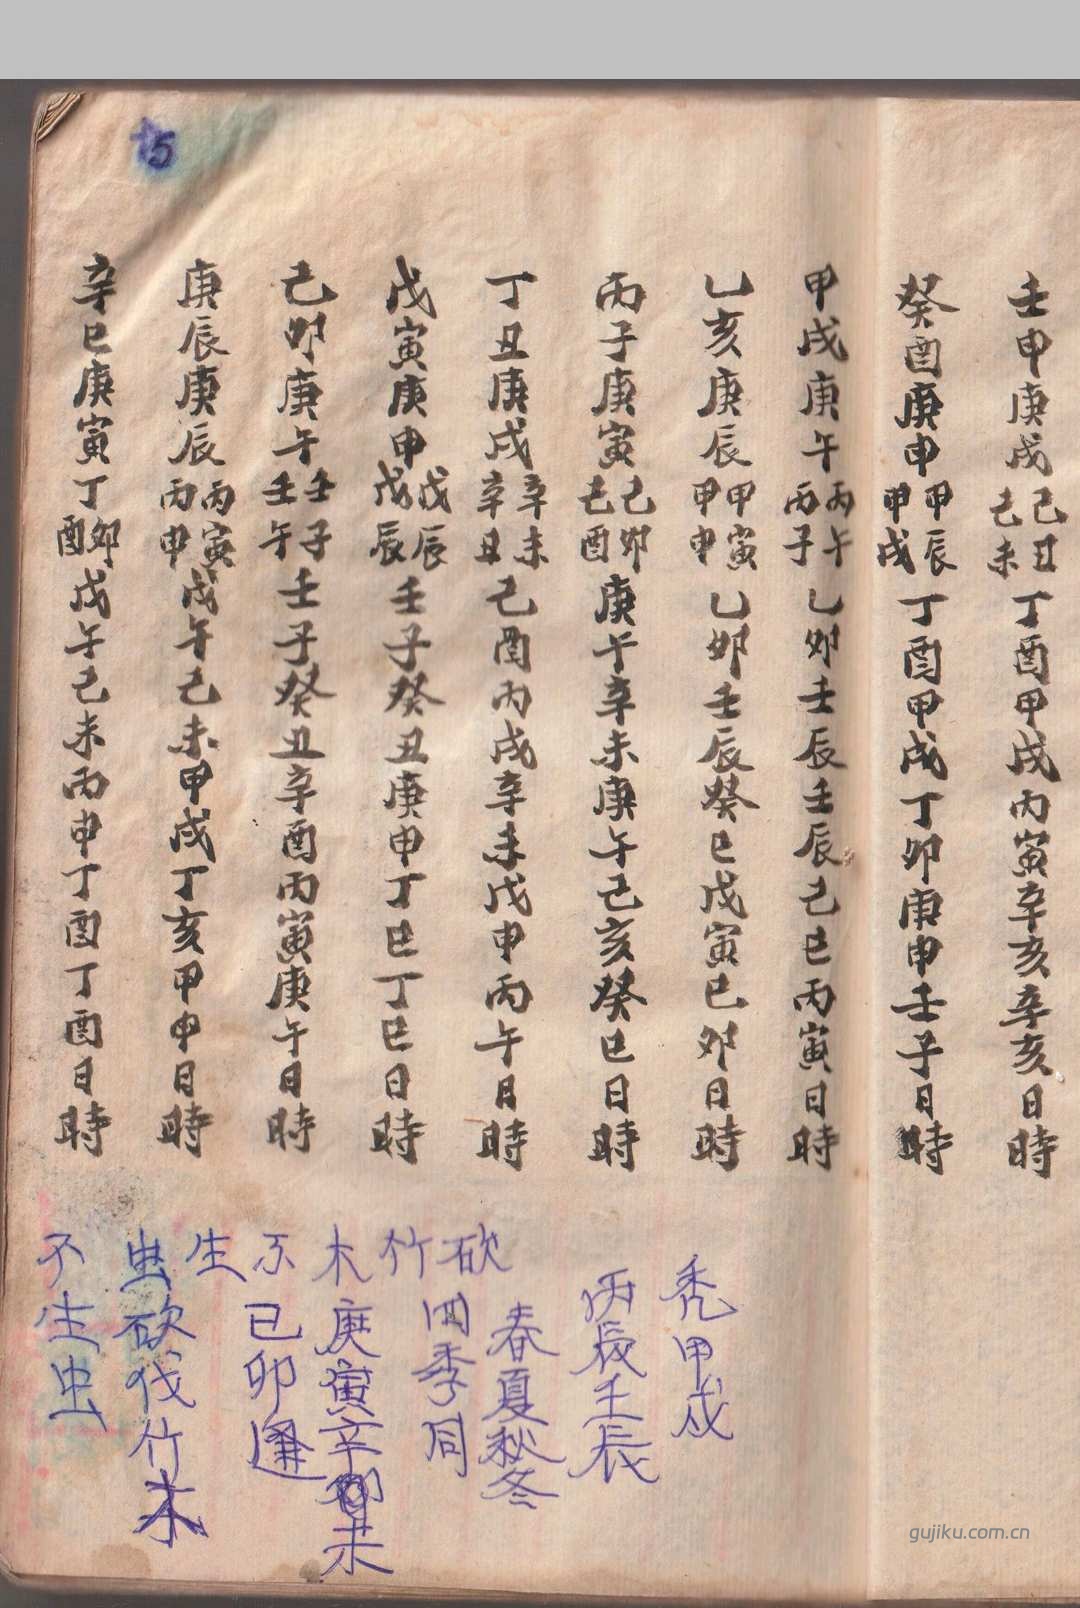 壬申庚戌己丑己未丁酉甲戌丙寅辛亥辛亥日時
癸酉庚申甲辰甲戌丁酉甲戌丁卯庚申壬子日時
甲戌庚午丙午丙子乙卯壬辰壬辰己巳丙寅日時
乙亥庚辰甲寅甲申乙卯壬辰癸巳戊寅巳卯日時
丙子庚寅己卯己酉庚午辛未庚午己亥癸巳日時
丁丑庚戌辛未辛丑己酉丙戌辛未戊申丙午日時
戊寅庚申戊辰戊辰壬子癸丑庚申丁巳丁巳日時
己卯庚午壬子壬午壬子癸丑辛酉丙寅庚午日時
庚辰庚辰丙寅丙申戊午己未甲戌丁亥甲申日時
辛巳庚寅丁卯酉戊午己未丙申丁酉丁酉日時
15
砍竹木不生虫
禿甲戌
丙辰壬辰
春夏秋冬
四季同
庚寅辛未
己卯逢
砍伐竹木
不生虫
gujiku.com.cn